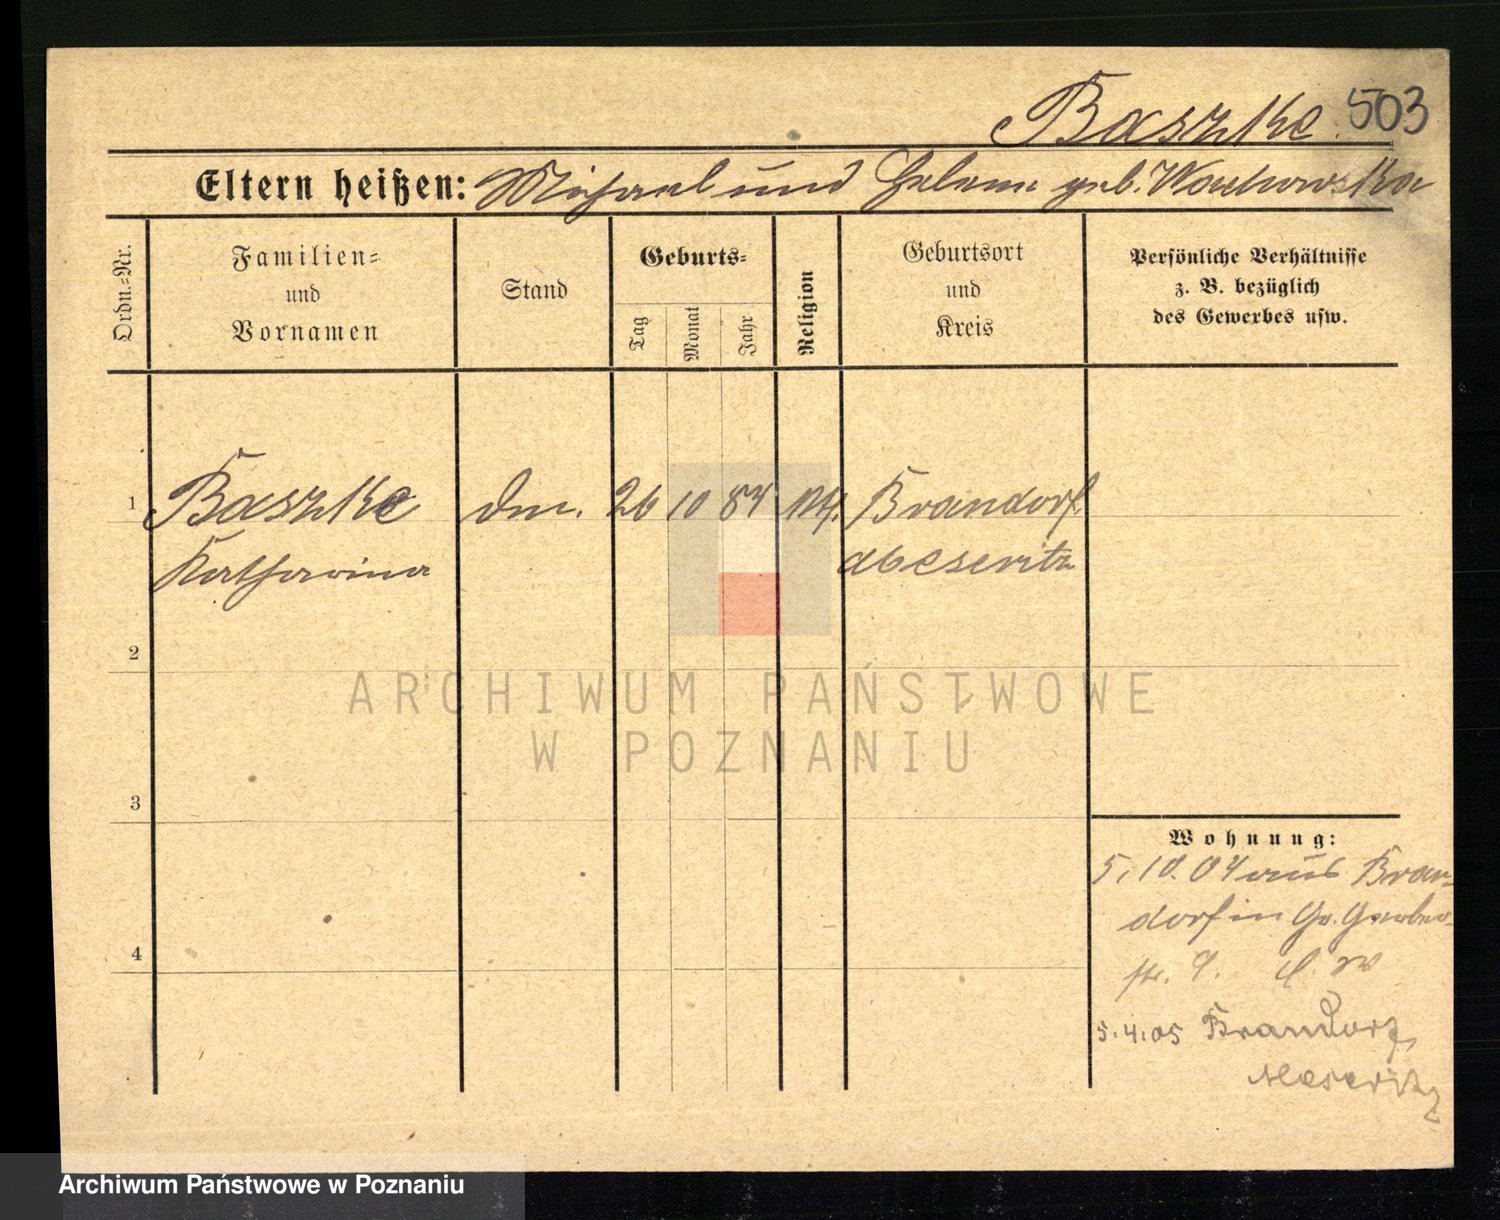 Baszke. 503
Eltern heißen: Michael und Helene geb. Wachowska
Ordn.-Nr.
Familien-
und
Vornamen
Stand
Geburts-
Tag
Monat
Jahr
Religion
Geburtsort
und
Kreis
Persönliche Verhältnisse
z. B. bezüglich
des Gewerbes usw.
1 Baszke dm. 26 10 84 kth. Brandorf
Katharina Meseritz
2
ARCHIWUM PAŃSTWOWE
W POZNANIU
3
Wohnung:
5.10.04 aus Bran-
dorf in Gr. Gerber-
4
str. 9.
5.4.05 Brandorf,
Meseritz
Archiwum Państwowe w Poznaniu